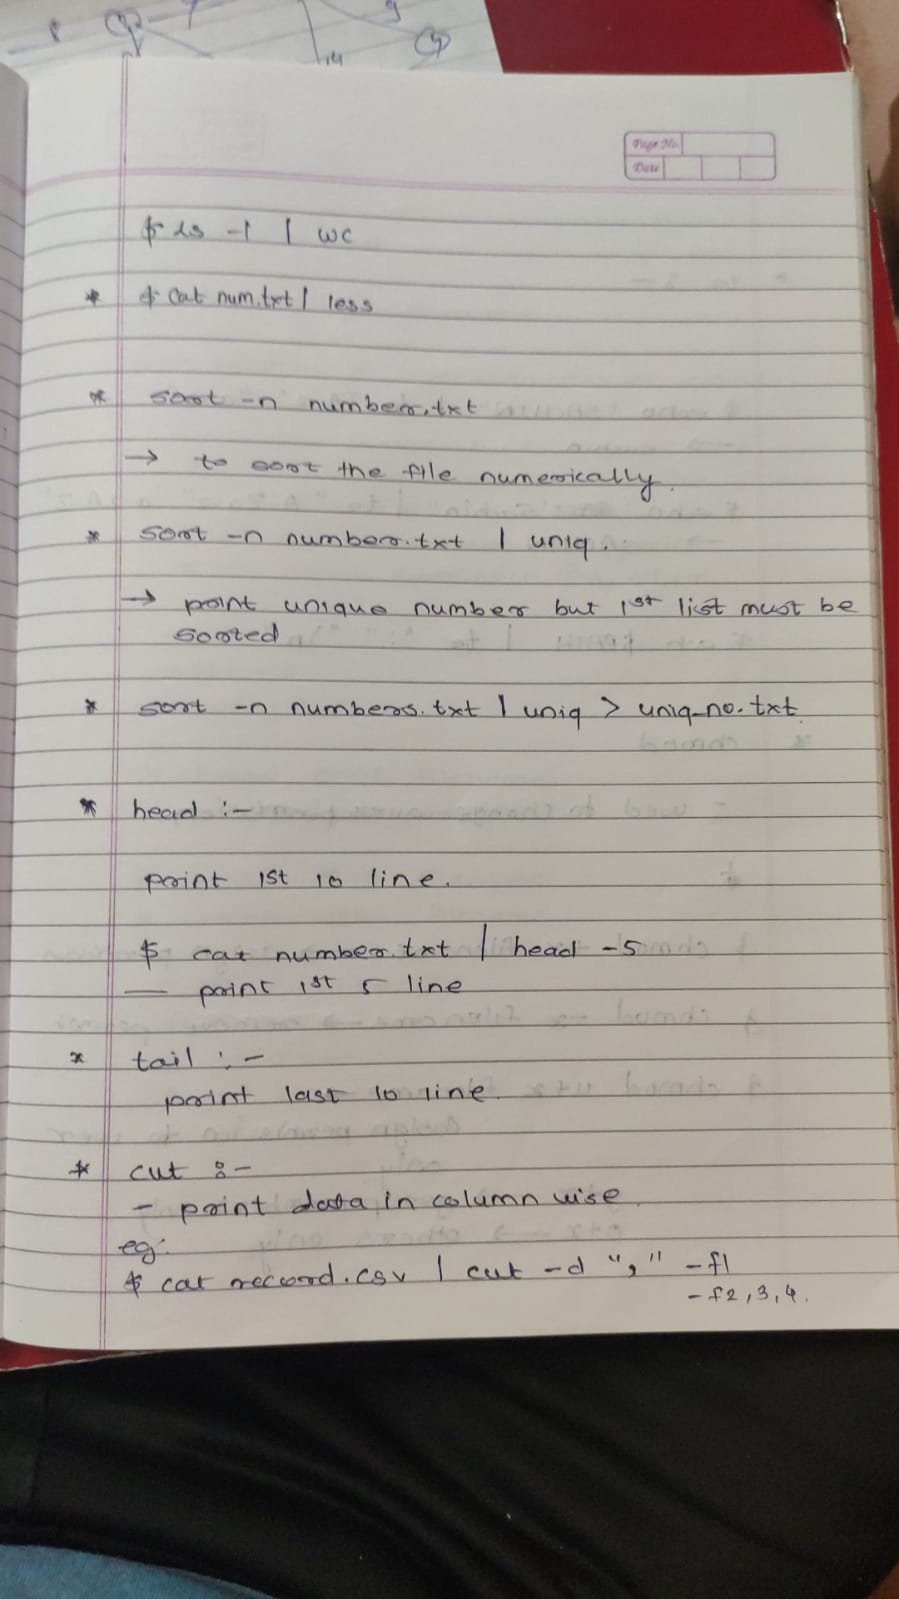 Page No.
Date
$ ls -l | wc
* $ cat num.txt | less
* sort -n number.txt
→ to sort the file numerically.
* sort -n numbers.txt | uniq.
→ print unique number but 1st list must be
sorted
* sort -n numbers.txt | uniq > uniq-no.txt
* head :-
print 1st 10 line.
$ cat number.txt | head -5
— print 1st 5 line
* tail :-
print last 10 line.
* cut :-
- print data in column wise
eg:
$ cat record.csv | cut -d "," -f1
-f2,3,4.